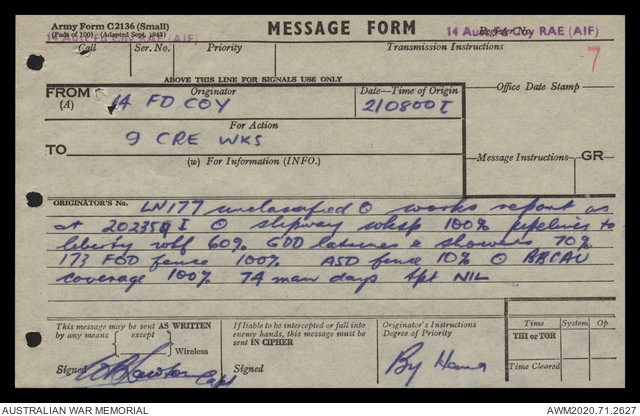 Army Form C2136 (Small)
(Pads of 100) (Adapted Sept. 1943)
MESSAGE FORM
14 Aust Fd Coy RAE (AIF)
14 Aust Fd Coy RAE (AIF)
Register No.
7
Call
Ser. No.
Priority
Transmission Instructions
ABOVE THIS LINE FOR SIGNALS USE ONLY
FROM
(A)
Originator
14 FD COY
Date—Time of Origin
210800I
Office Date Stamp—
For Action
TO
9 CRE WKS
(w) For Information (INFO.)
Message Instructions—
GR
ORIGINATOR'S No.
LN177 unclassified O works report as
at 202359 I O slipway wksp 100% pipelines to
liberty whf 60% GDD latrines & showers 70%
173 FOD fence 100% ASD fence 10% O BBCAU
coverage 100% 74 man days tpt NIL
This message may be sent AS WRITTEN
by any means
except
Wireless
Signed
Capt
If liable to be intercepted or fall into
enemy hands, this message must be
sent IN CIPHER
Signed
Originator's Instructions
Degree of Priority
By Hand
Time
System
Op
THI or TOR
Time Cleared
AUSTRALIAN WAR MEMORIAL
AWM2020.71.2627